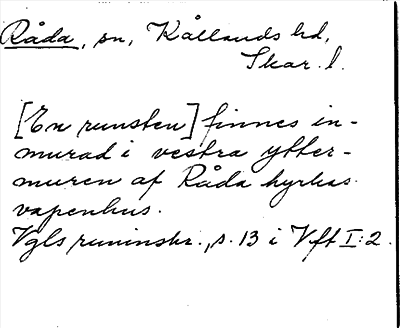 Råda, sn, Kållands hd,
Skar. l.
[En runsten] finnes in-
murad i vestra ytter-
muren af Råda kyrkas
vapenhus.
Vgls runinskr., s. 13 i Vft I:2.